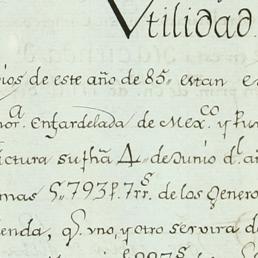 Vtilidad.
ios de este año de 85,, estan e
or.ᵃ enfardelada de Mexᶜᵒ. y fu
ictura su fhã 4,, de Junio dl a
mas 5,,793 p.ˢ 7 rr.ˢ de los Genero
enda, q.ᵉ vno, y otro servira de